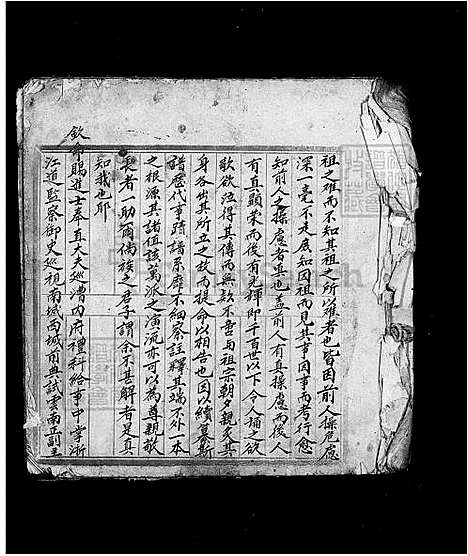 祖之难而不知其祖之所以难者也皆因前人操危慮
深一毫不走底知因祖而見其事因事而考行愈
知前人之操慮者真也蓋前人有真操慮而後人
有真顯榮而後有光輝即千百世以下令人誦之欲
歌欲泣得其傳而無欵不啻与祖宗朝夕親炙其
身各出其所立之故而提命以相告也因以續纂斯
譜歷代事蹟譜系靡不细察註釋其端不外一本
之根源其諸值該萬派之演流亦可以為尊親敬
長者一助爾倘族之君子謂余不甚解者是真
知我也耶
欽命賜進士奉直大夫巡漕内府禮科給事中掌浙
江道監察御史巡視南城西城前典試雲南正副主